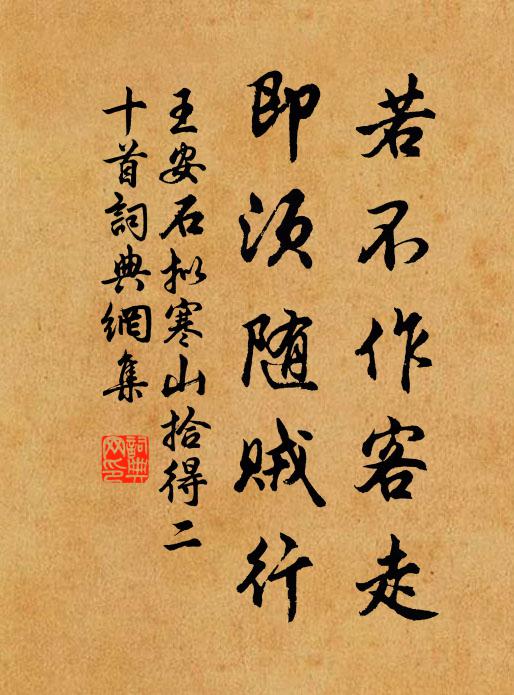 若不作客走
即须随贼行
王安石拟寒山拾得二
十首詞典網集
詞典
网印